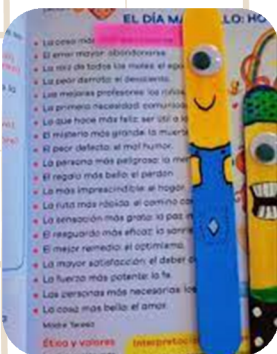 EL DÍA MA LLO: HO
La cosa más
El error mayor: abandonarse
La raíz de todos los males: el ego
La peor derrota: el desaliento.
Los mejores profesores: los niños
La primera necesidad: comunica
Lo que hace más feliz: ser útil a lo
El misterio más grande: la muerte
El peor defecto: el mal humor.
La persona más peligrosa: la me
El regalo más bello: el perdón
Lo más imprescindible: el hogar.
La ruta más rápida: el camino co
La sensación más grata: la paz in
El resguardo más eficaz: la sonris
El mejor remedio: el optimismo.
La mayor satisfacción: el deber c
La fuerza más potente: la fe.
Las personas más necesarias: los
La cosa más bella: el amor.
Madre Teresa
Ética y valores Interpretació